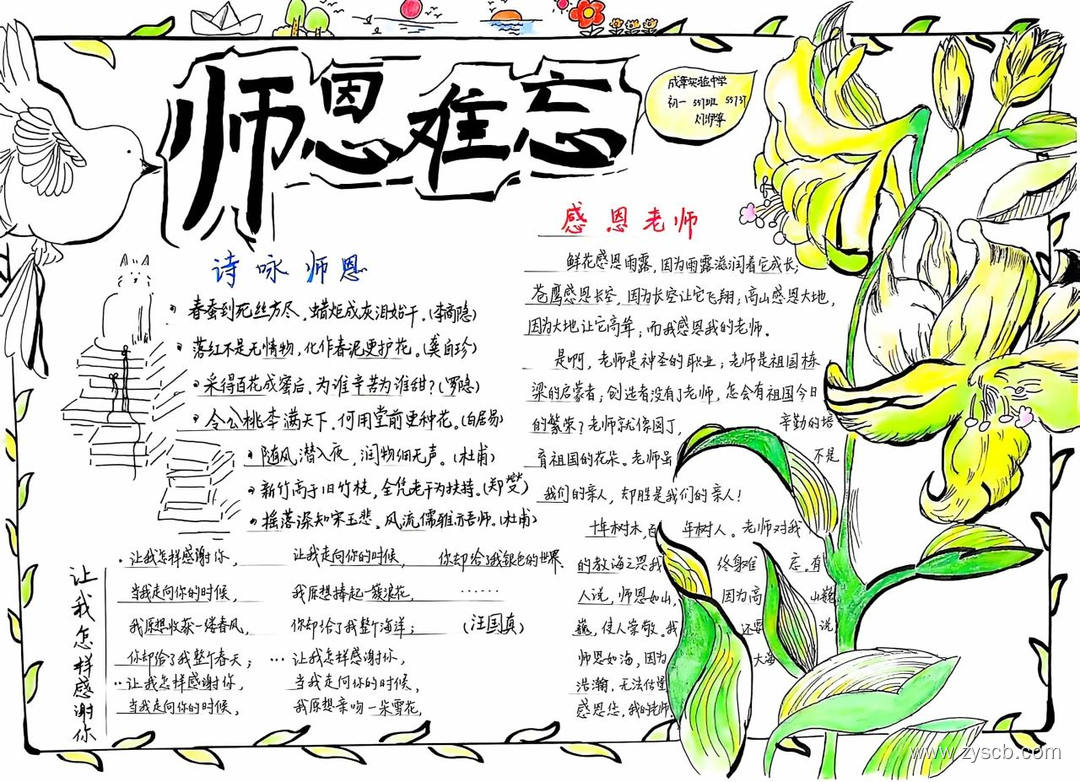 师恩难忘
成章实验中学
初一 557班 55737
诗咏师恩
春蚕到死丝方尽，蜡炬成灰泪始干。(李商隐)
落红不是无情物，化作春泥更护花。(龚自珍)
采得百花成蜜后，为谁辛苦为谁甜？(罗隐)
令公桃李满天下，何用堂前更种花。(白居易)
随风潜入夜，润物细无声。(杜甫)
新竹高于旧竹枝，全凭老干为扶持。(郑燮)
摇落深知宋玉悲，风流儒雅亦吾师。(杜甫)
让我怎样感谢你
让我怎样感谢你，
当我走向你的时候，
我原想收获一缕春风，
你却给了我整个春天；
让我怎样感谢你，
当我走向你的时候，
让我走向你的时候，
我原想捧起一簇浪花，
你却给了我整个海洋；
…让我怎样感谢你，
当我走向你的时候，
我原想亲吻一朵雪花，
你却给了我银色的世界．
……
(汪国真)
感恩老师
鲜花感恩雨露，因为雨露滋润着它成长；
苍鹰感恩长空，因为长空让它飞翔；高山感恩大地，
因为大地让它高耸；而我感恩我的老师。
是啊，老师是神圣的职业；老师是祖国栋
梁的启蒙者，创造者没有了老师，怎会有祖国今日
的繁荣？老师就像园丁， 辛勤的培
育祖国的花朵。老师虽 不是
我们的亲人，却胜是我们的亲人！
树木，百 年树人。老师对我
的教诲之恩我 终身难 忘，有
人说，师恩如山， 因为高 山巍
巍，使人崇敬。我 还要 说
师恩如海，因为 大海
浩瀚，无法估
感恩您，我的老师
www.zyscb.com